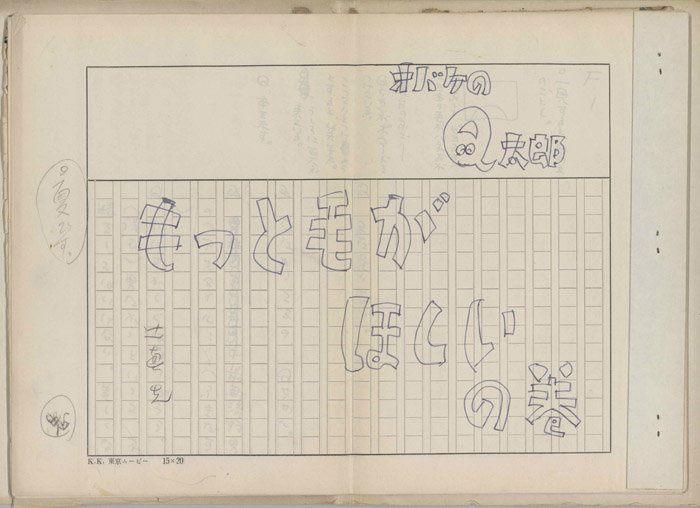 オバケの
Q太郎
もっと毛が
ほしい
の巻
辻真先
夏です。
K.K. 東京ムービー 15×20